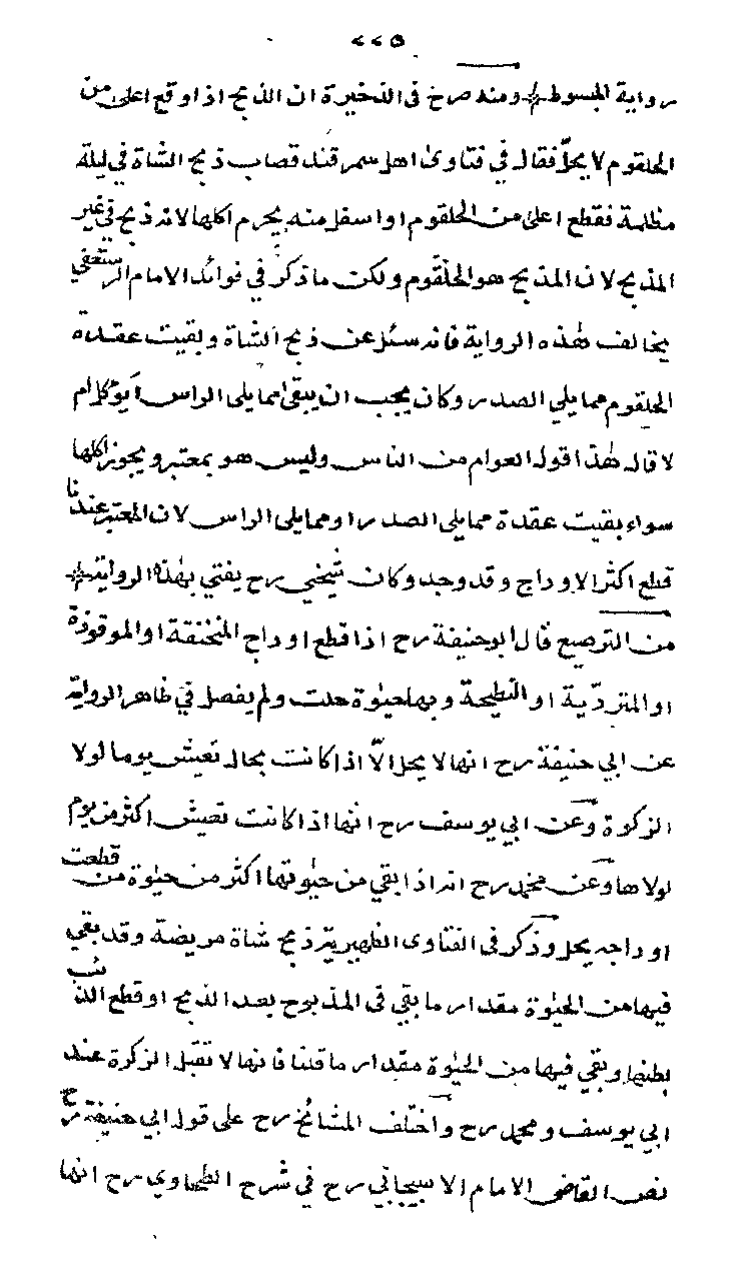 ٢٢٥
رواية المبسوط ومنه صرح فى الذخيرة ان الذبح اذا وقع اعلى من
الحلقوم لا يحلّ فقال في فتاوى اهل سمرقند قصاب ذبح الشاة في ليلة
مظلمة فقطع اعلى من الحلقوم او اسفل منه يحرم اكلها لانه ذبح في غير
المذبح لان المذبح هو الحلقوم ولكن ما ذكر في فوائد الامام الرستغفني
يخالف هذه الرواية فانه سئل عن ذبح الشاة وبقيت عقدة
الحلقوم مما يلي الصدر وكان يجب ان يبقى مما يلى الراس أيؤكل ام
لا قال هذا قول العوام من الناس وليس هو بمعتبر ويجوز اكلها
سواء بقيت عقدة مما يلى الصدر او مما يلى الراس لان المعتبر عندنا
قطع اكثر الاوداج وقد وجد وكان شيخي رح يفتي بهذه الرواية
من الترصيع قال ابو حنيفة رح اذا قطع اوداج المنخنقة او الموقوذة
او المتردّية او النطيحة وبها حيوة حلت ولم يفصل في ظاهر الرواية
عن ابي حنيفة رح انها لا يحل الاّ اذا كانت بحال تعيش يوما لولا
الزكوة وعن ابي يوسف رح انها اذا كانت تعيش اكثر من يوم
لولاها وعن محمد رح انه اذا بقي من حيوتها اكثر من حيوة من قطعت
اوداجه يحل وذكر فى الفتاوى الظهيرية ذبح شاة مريضة وقد بقي
فيها من الحيوة مقدار ما بقي فى المذبوح بعد الذبح او قطع الذئب
بطنها وبقي فيها من الحيوة مقدار ما قلنا فانها لا تقبل الزكوة عند
ابي يوسف ومحمد رح واختلف المشائخ رح على قول ابي حنيفة رح
نص القاضى الامام الاسبيجابي رح في شرح الطحاوي رح انها